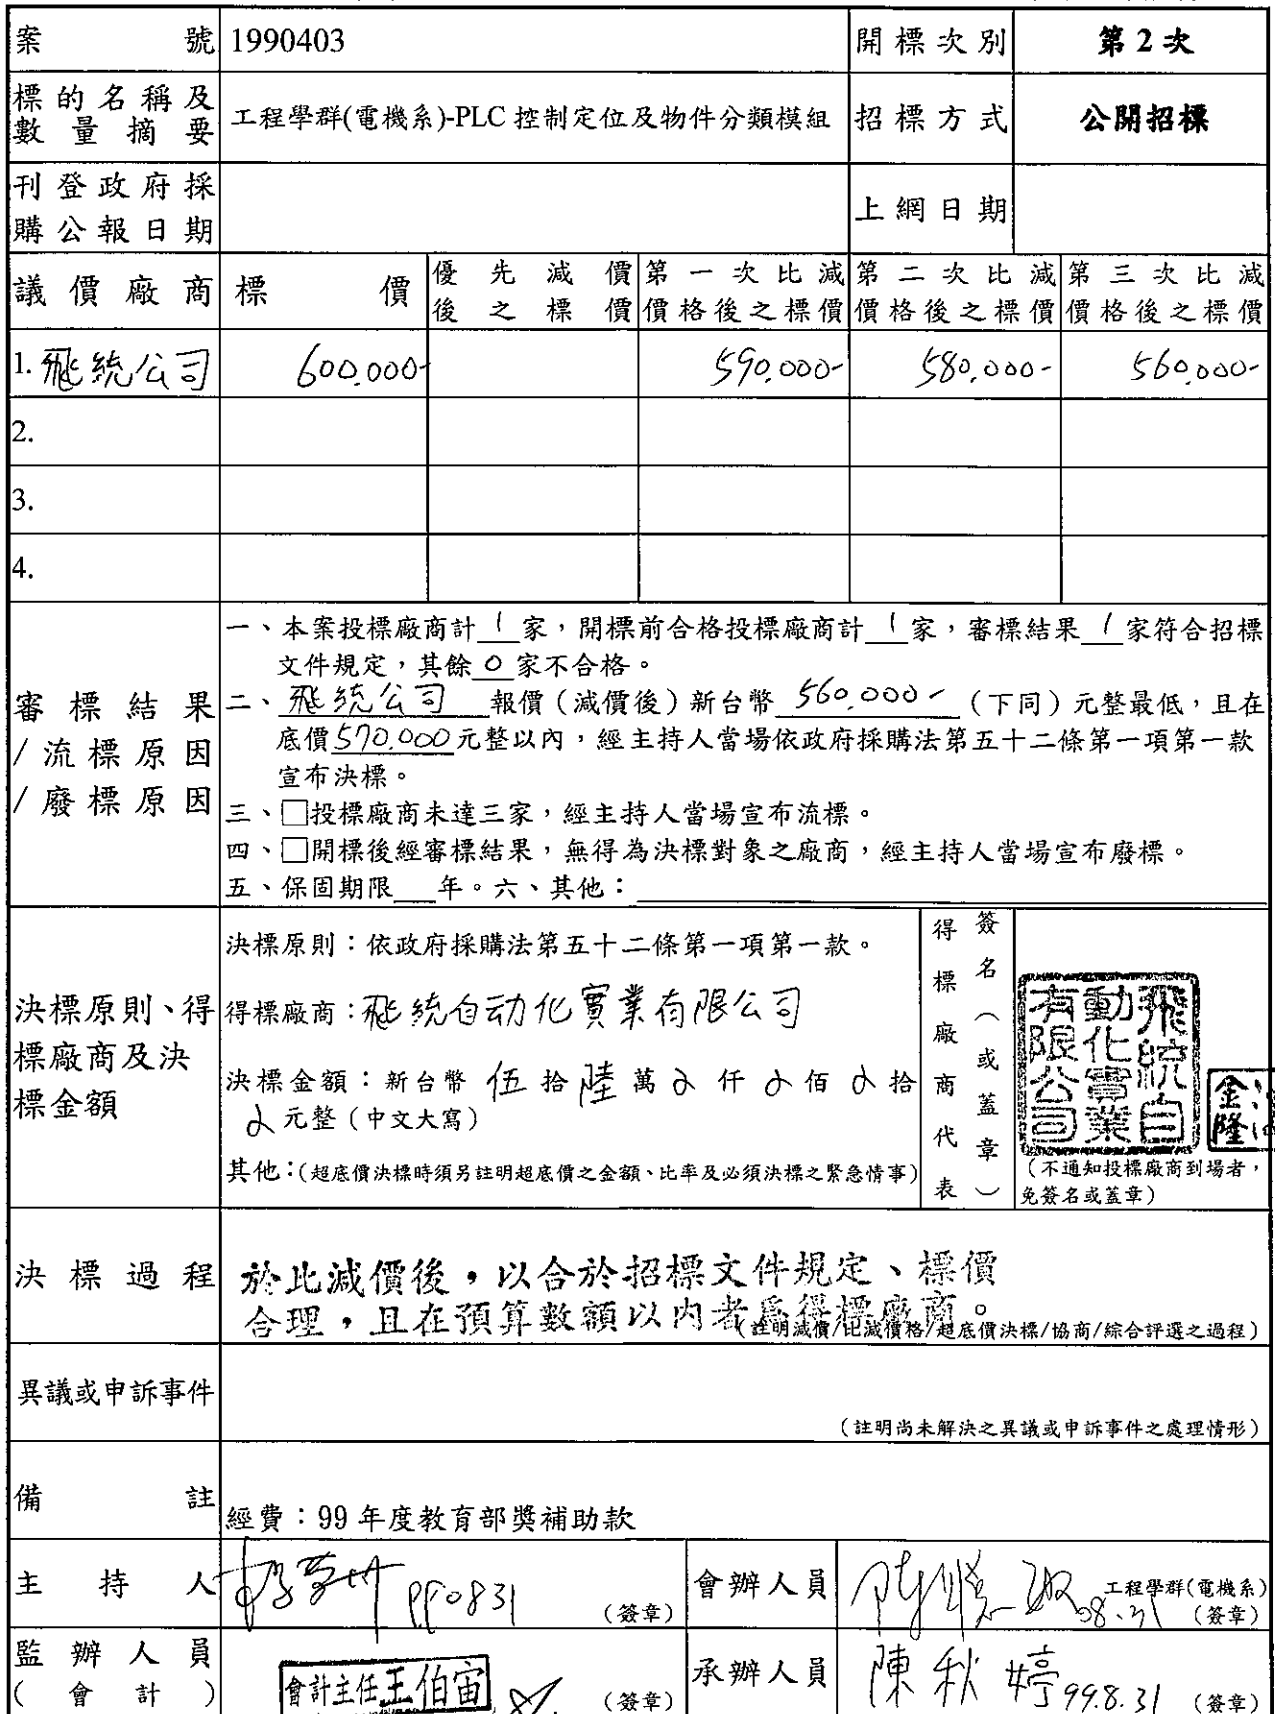 案號 1990403 開標次別 第2次
標的名稱及數量摘要 工程學群(電機系)-PLC 控制定位及物件分類模組 招標方式 公開招標
刊登政府採購公報日期 上網日期
議價廠商 標價 優先減價後之標價 第一次比減價格後之標價 第二次比減價格後之標價 第三次比減價格後之標價
1. 飛統公司 600,000- 590,000- 580,000- 560,000-
2.
3.
4.
審標結果/流標原因/廢標原因
一、本案投標廠商計 1 家，開標前合格投標廠商計 1 家，審標結果 1 家符合招標
文件規定，其餘 0 家不合格。
二、飛統公司 報價（減價後）新台幣 560,000- （下同）元整最低，且在
底價 570,000 元整以內，經主持人當場依政府採購法第五十二條第一項第一款
宣布決標。
三、□投標廠商未達三家，經主持人當場宣布流標。
四、□開標後經審標結果，無得為決標對象之廠商，經主持人當場宣布廢標。
五、保固期限___年。六、其他：
決標原則、得標廠商及決標金額
決標原則：依政府採購法第五十二條第一項第一款。
得標廠商：飛統自动化實業有限公司
決標金額：新台幣 伍 拾 陸 萬 0 仟 0 佰 0 拾
0 元整（中文大寫）
其他：（超底價決標時須另註明超底價之金額、比率及必須決標之緊急情事）
得標廠商代表簽名（或蓋章）
飛統自動化實業有限公司
金隆
（不通知投標廠商到場者，
免簽名或蓋章）
決標過程
於比減價後，以合於招標文件規定、標價
合理，且在預算數額以內者為得標廠商。
（註明減價/比減價格/超底價決標/協商/綜合評選之過程）
異議或申訴事件
（註明尚未解決之異議或申訴事件之處理情形）
備註 經費：99 年度教育部獎補助款
主持人 990831 （簽章） 會辦人員 工程學群(電機系) 08.31 （簽章）
監辦人員（會計） 會計主任王伯宙 （簽章） 承辦人員 陳秋婷 99.8.31 （簽章）